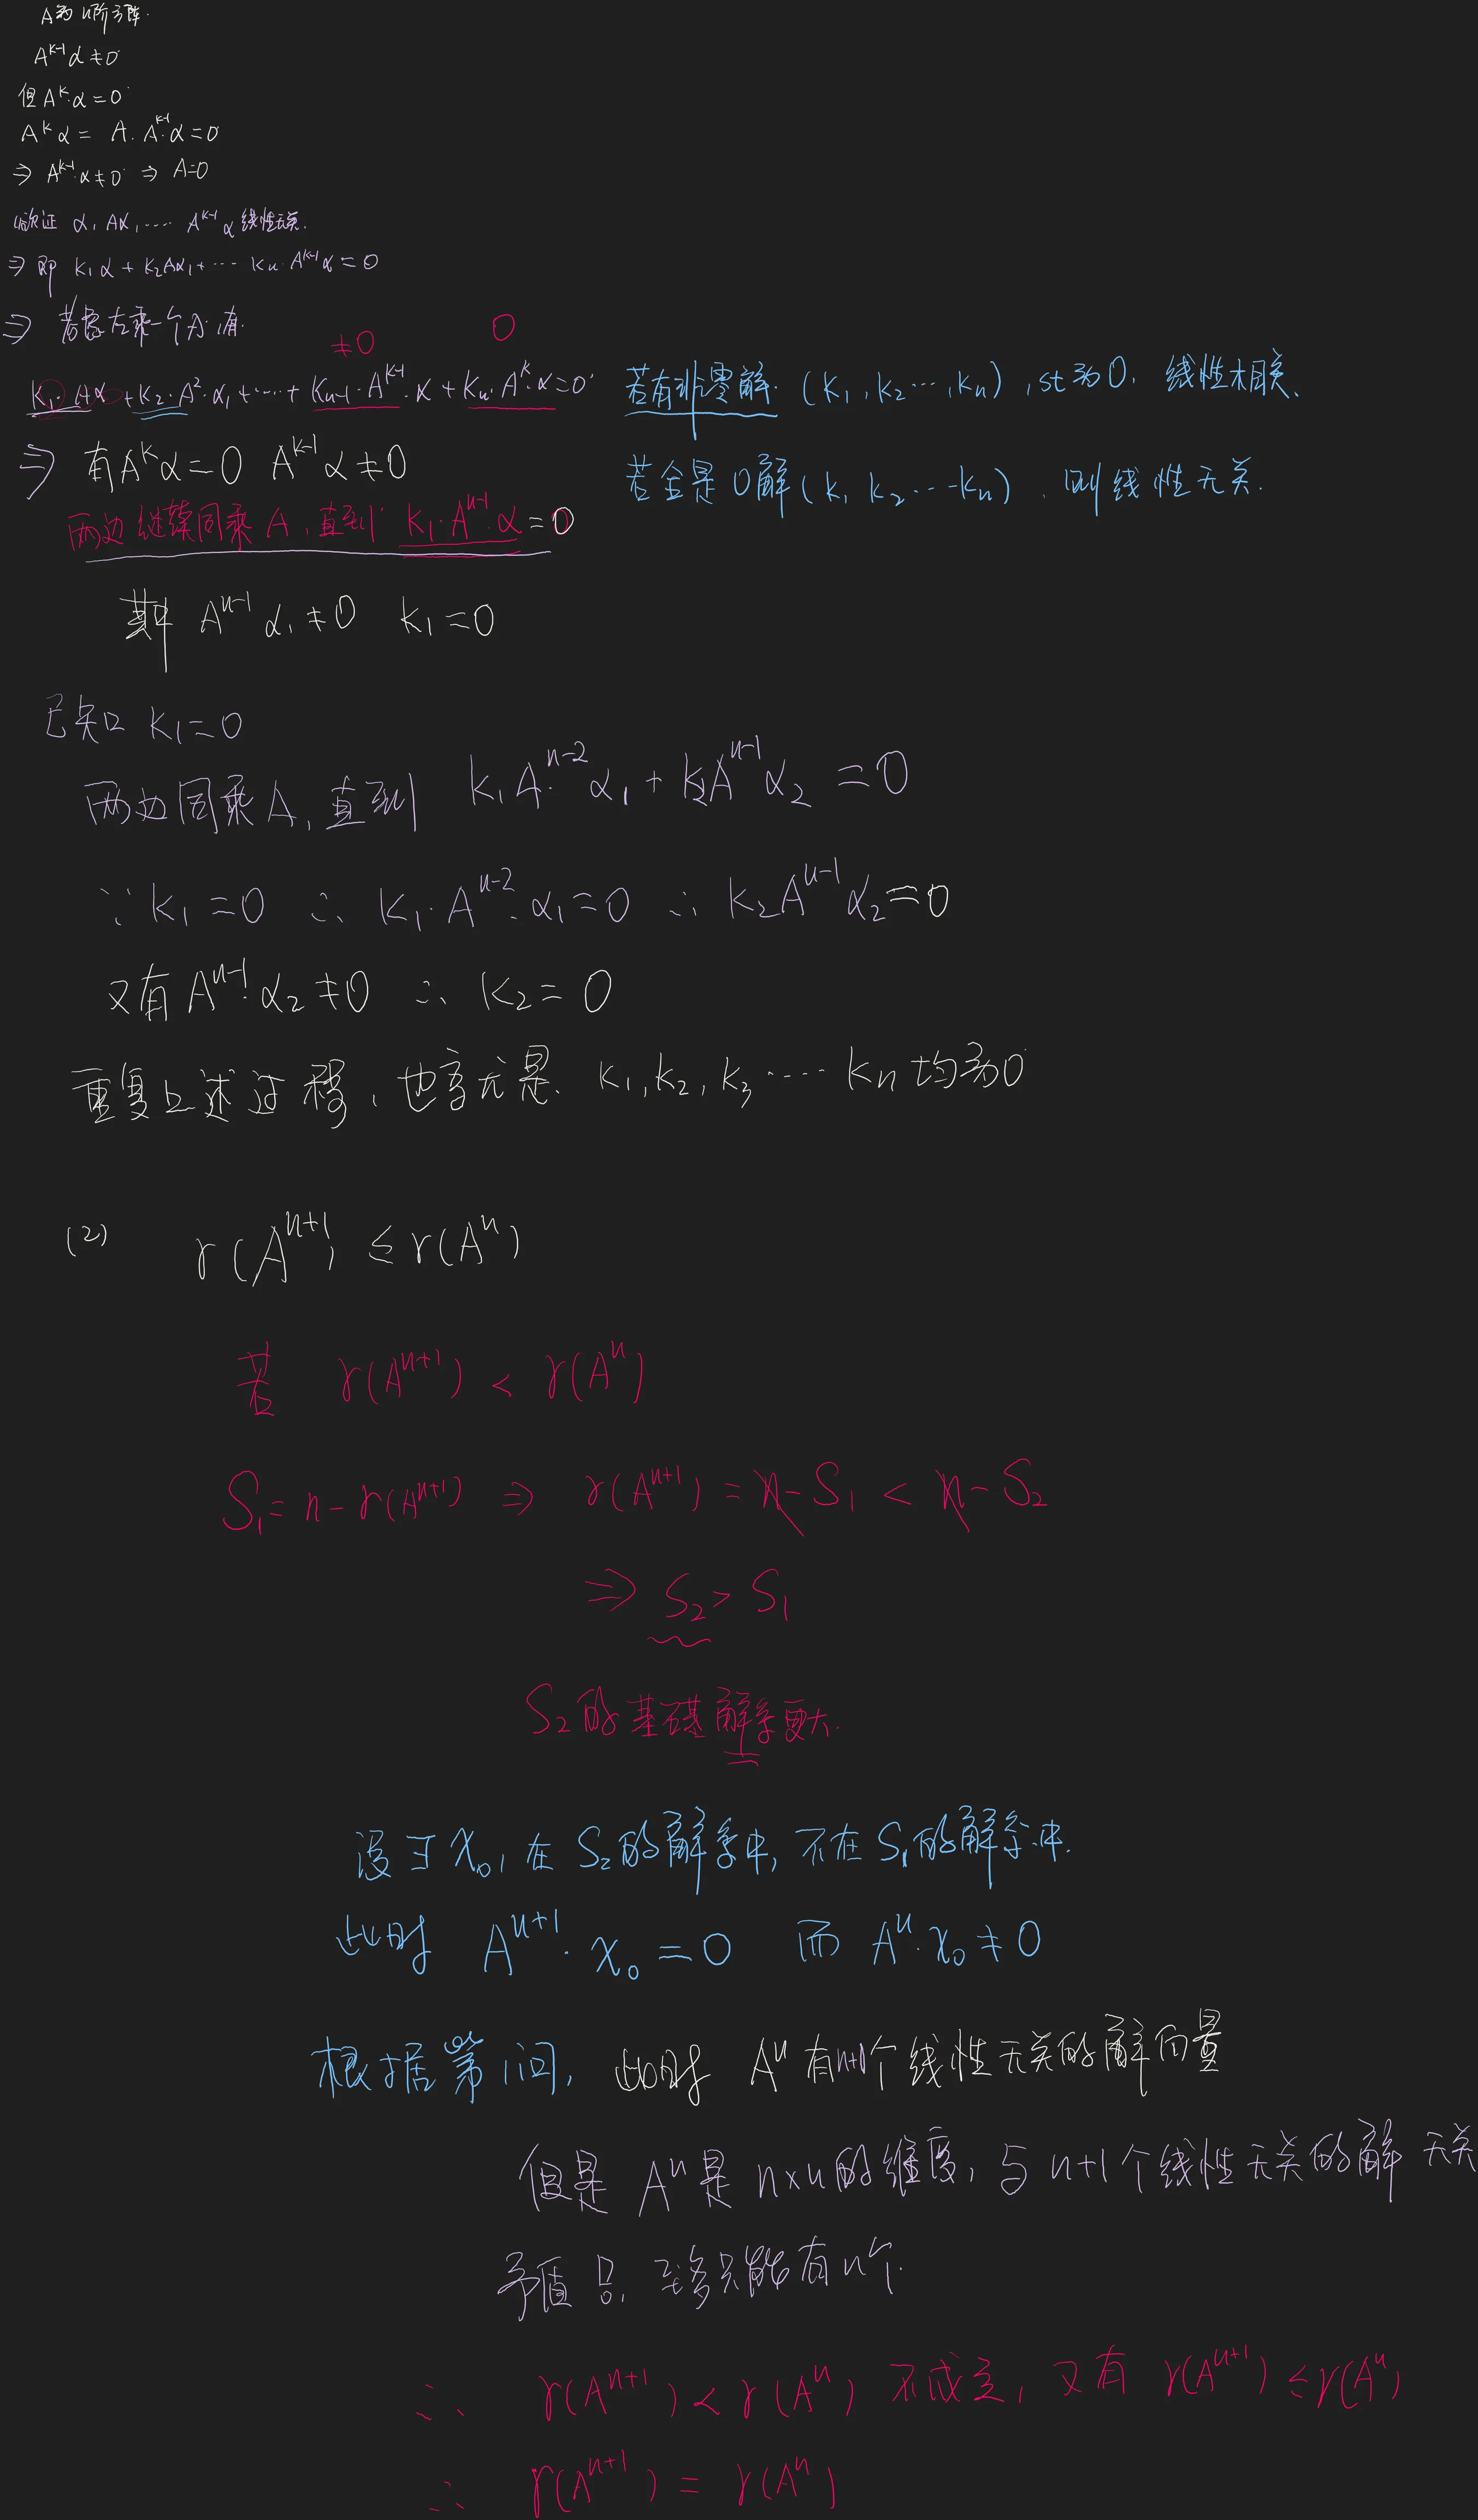 A为n阶方阵.
A^{k-1}α≠0
但A^k·α=0
A^kα = A·A^{k-1}·α=0
⇒ A^{k-1}·α≠0 ⇒ A=0
欲证 α, Aα, ····· A^{k-1}α 线性无关.
⇒ 即 k₁α + k₂Aα₁ + ··· kₙ·A^{k-1}α = 0
⇒ 若左乘一个A,有.
≠0 0
k₁·Aα + k₂·A²·α₁ + ···· + kₙ₋₁·A^{k-1}·α + kₙ·A^k·α=0 若有非零解. (k₁,k₂···,kₙ), st为0, 线性相关、
⇒ 有A^kα=0 A^{k-1}α≠0 若全是0解(k₁ k₂···kₙ), 则线性无关.
两边继续同乘A,直到 k₁·A^{n-1}·α=0
其中 A^{n-1}α₁≠0 k₁=0
已知 k₁=0
两边同乘A,直到 k₁A^{n-2}·α₁ + k₂A^{n-1}α₂=0
∵k₁=0 ∴ k₁·A^{n-2}·α₁=0 ∴ k₂A^{n-1}α₂=0
又有A^{n-1}·α₂≠0 ∴ k₂=0
重复上述过程, k₁,k₂,k₃····· kₙ 均为0
(2) r(A^{n+1}) ≤ r(A^n)
若 r(A^{n+1}) < r(A^n)
S₁=n-r(A^{n+1}) ⇒ r(A^{n+1}) = n-S₁ < n-S₂
⇒ S₂>S₁
S₂的基础解系更大.
设∃x₀, 在S₂的解系中, 不在S₁的解系中.
此时 A^{n+1}·x₀=0 而 A^n·x₀≠0
根据第1问, 此时 A^n有n+1个线性无关的解向量
但是 A^n是n×n的维度, 与n+1个线性无关的解 无关
矛盾!, 至多只能有n个.
∴ r(A^{n+1}) < r(A^n) 不成立, 又有 r(A^{n+1}) ≤ r(A^n)
∴ r(A^{n+1}) = r(A^n)